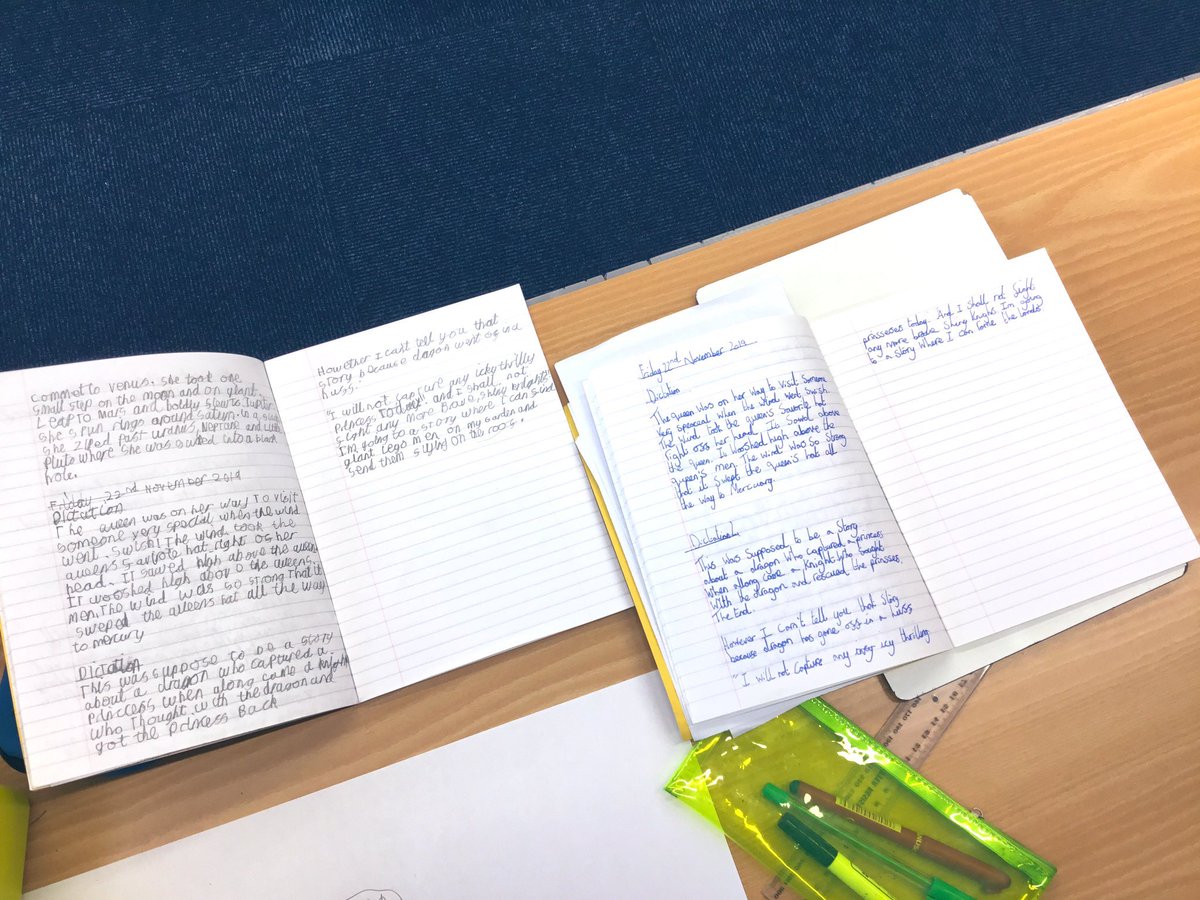 commet to venus. she took one
small step on the moon and on giant
Leap to Mars and boldly slee to Jupiter
she s run rings around saturn, in a
she ziped past uranus, Neptune and Little
Pluto where she was sucked into a black
hole.
Friday 22nd November 2019
Dictation
The queen was on her way to visit
someone very special when the wind
went. Swich! The wind. took the
queens savrote hat right os her
head. It sawed high above the queen
It wooshed high above the queens.
men. The wind was so strong That it
sweped the queens hat all the way
to mercury
Dictation
This was suppose to be a story
about a dragon who captured a
princess when along came a
who Thought with the dragon and
got the Princess Back
However I cant tell you that
story because dragon went os in a
huss.
"I will not capture any icky thrilley
princess TODAY. and I shall, not
sight any More Brave, shiny knights
I'm going to a story where I can
giant Lego men on my Garden and
send them slying on the roos.
Friday 22nd November 2019
Dictation
The queen was on her way to visit someone
very speceal when the wind went swish
The wind took the queen's savorite hat
right oss her head. It sawd above
the queen. Is wooshed high above the
queen's men. The wind was so strong
that it swept the queen's hat all
the way to Mercuary.
Dictation 2
This was supposed to be a story
about a dragon who captured a princess
when along came a Knight who fought
With the dragon and rescued the prinsses.
The End.
However I carn't tell you that story
because dragon has gone oss in a huss
"I will not capture any icy thrilling
prisseses today. And I shall not sight
any more brave Shiny Knights I'm going
to a story where I can the